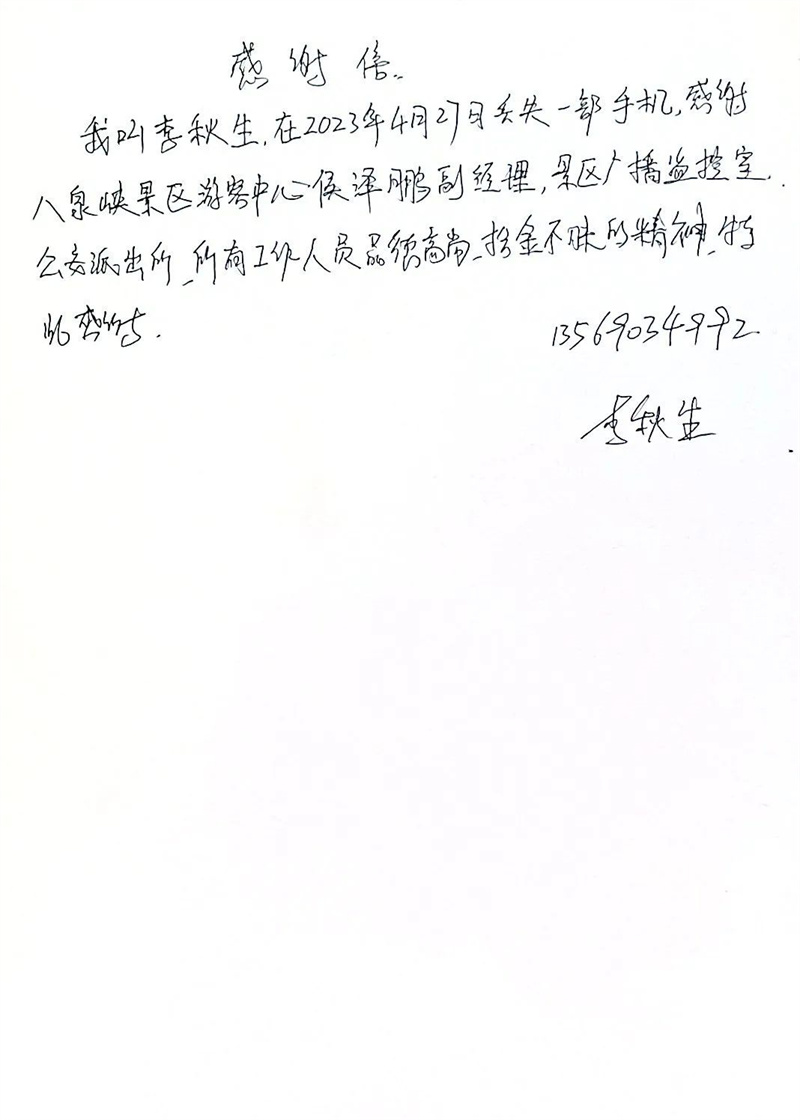 感谢信
我叫李秋生,在2023年4月27日丢失一部手机,感谢
八泉峡景区游客中心侯泽鹏副经理,景区广播监控室.
公安派出所、所有工作人员品德高尚、拾金不昧的精神、特
此感谢.
13569034992
李秋生